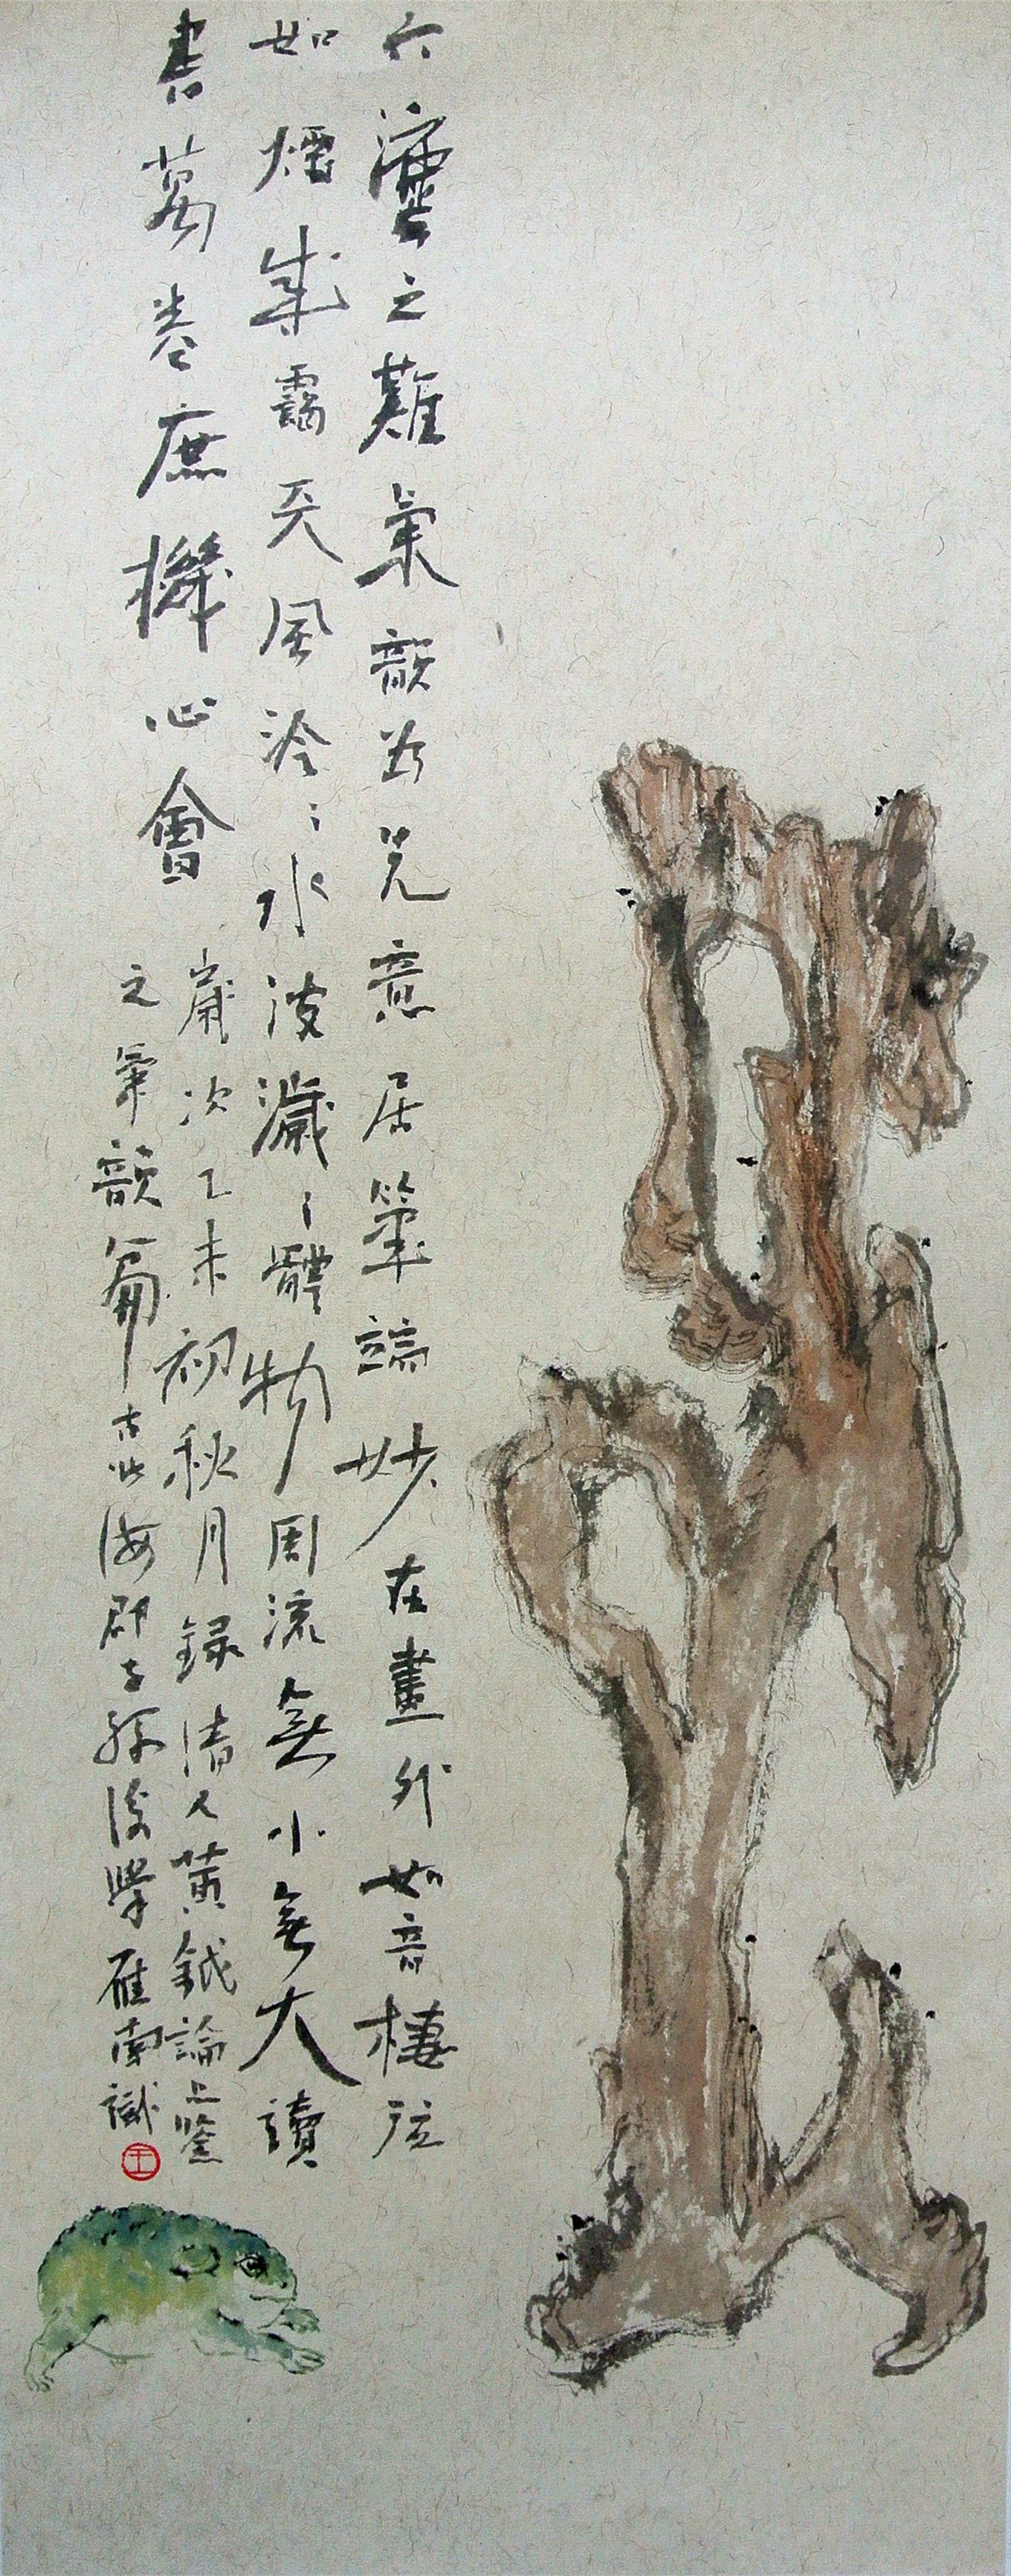 六灋之難氣韻為先意居筆端妙在畫外如音棲弦
如煙成靄天風泠〻水波濊〻體物周流無小無大讀
書萬卷庶機心會
歲次乙未初秋月録清人黃鉞論上鑒
之氣韻篇古北海郡子孫後學雁南識
王